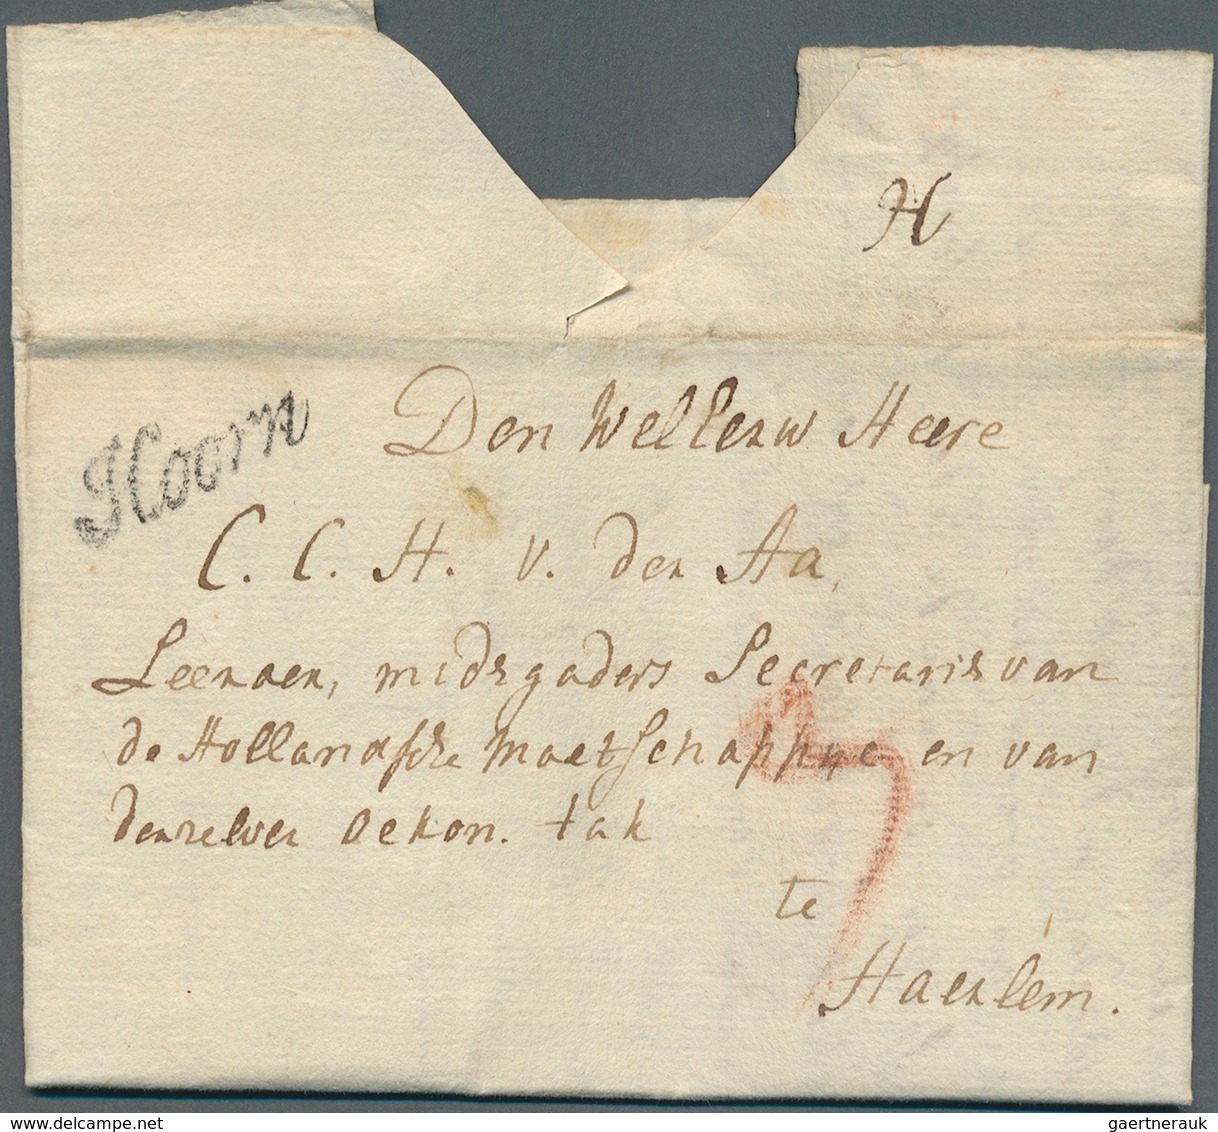 H
Hoorn
Den WelEerw Heere
C. C. H. v. den Aa,
Leeraer, midsgaders Secretaris van
de Hollandsche Maetschappye en van
derzelver Oekon. tak
te
Haerlem.
gaertnerauk